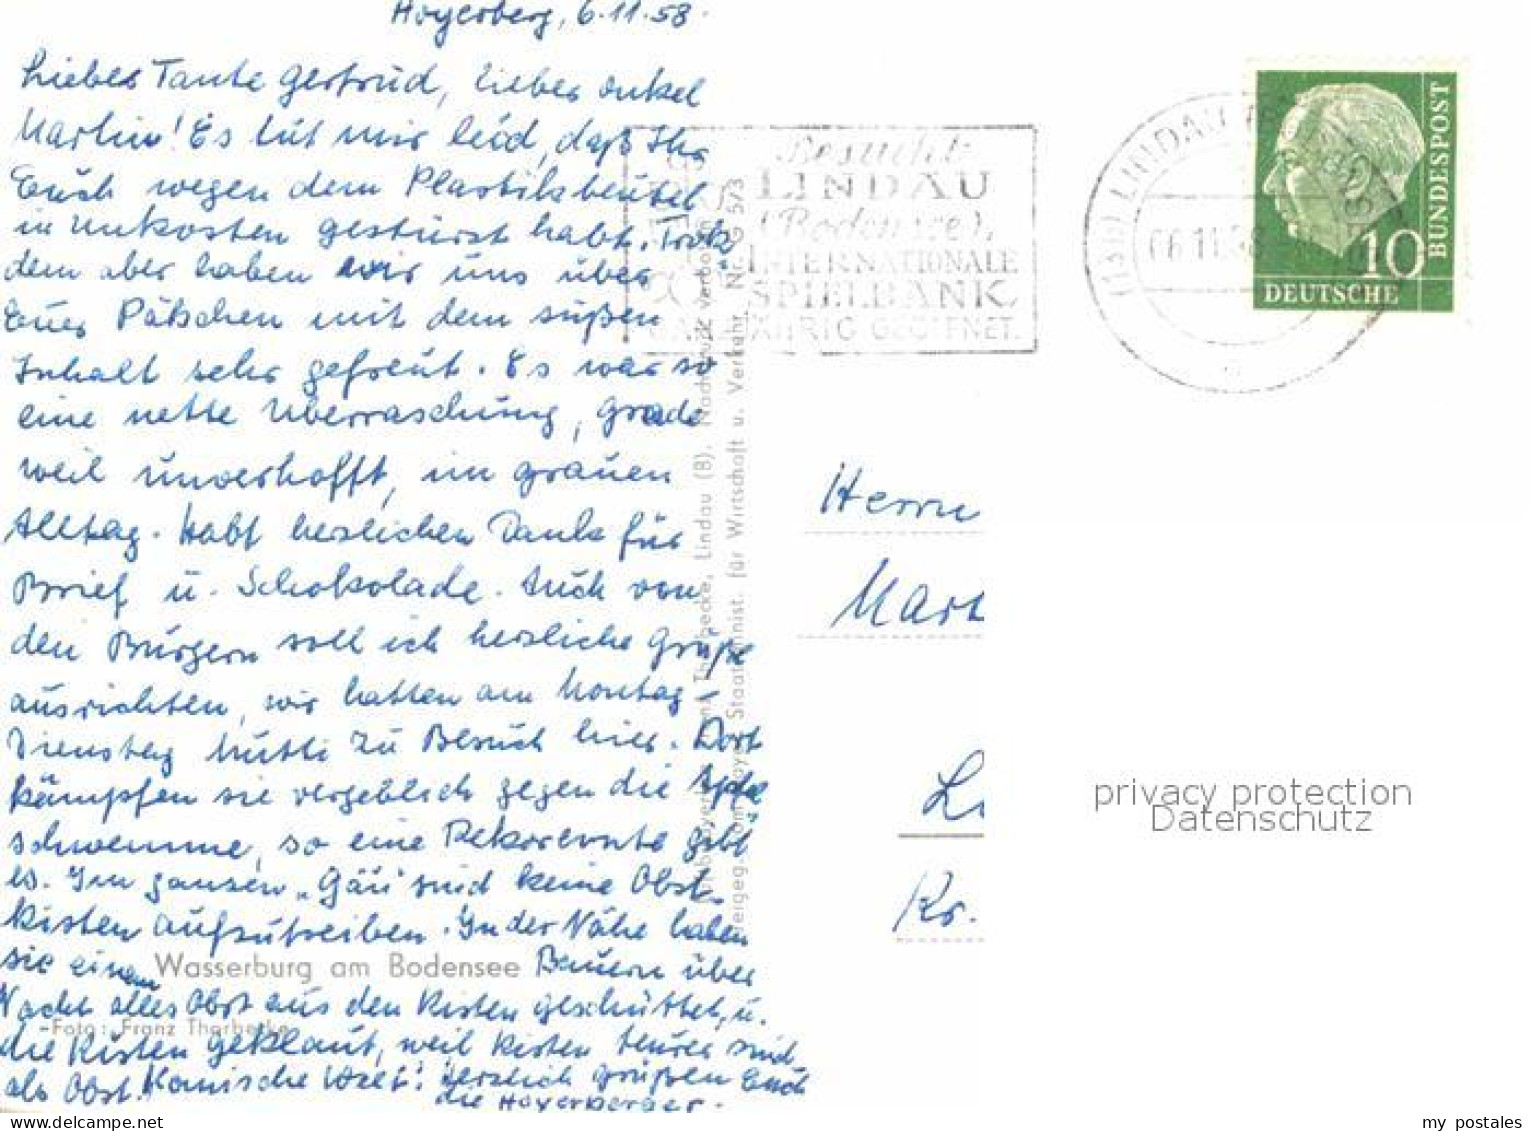 Hoyerberg, 6.11.58.
Liebes Tante Gertrud, Lieber Onkel
Martin! Es tut mir leid, daß Ihr
Euch wegen dem Plastikbeutel
in Unkosten gestürzt habt. Trotz
dem aber haben wir uns über
Euer Pätschen mit dem süßen
Inhalt sehr gefreut. Es war so
eine nette Überraschung, grade
weil unverhofft, im grauen
Alltag. Habt herzlichen Dank für
Brief u. Schokolade. Auch von
den Bürgern soll ich herzliche Grüße
ausrichten, wir hatten am Montag-
Dienstag Mutti zu Besuch hier. Dort
kämpfen sie vergeblich gegen die Apfel
schwemme, so eine Rekorernte gibt
es. Im ganzen „Gäu sind keine Obst
kisten aufzutreiben. In der Nähe haben
sie einem Bauern über
Nacht alles Obst aus den Kisten geschüttet, u.
die Kisten geklaut, weil Kisten teurer sind
als Obst. Komische Welt! Herzlich grüßen Euch
die Hoyerberger.
Wasserburg am Bodensee
Foto: Franz Thorbecke
Thorbecke, Lindau (B). Nachdruck verboten
Staatsminist. für Wirtschaft u. Verkehr Nr. G 5/3
Besucht
LINDAU
(Bodensee),
INTERNATIONALE
SPIELBANK
GANZJÄHRIG GEÖFFNET.
LINDAU
06.11.58
BUNDESPOST
10
DEUTSCHE
Herrn
Mart
Li
Kr.
privacy protection
Datenschutz
www.delcampe.net
my postales